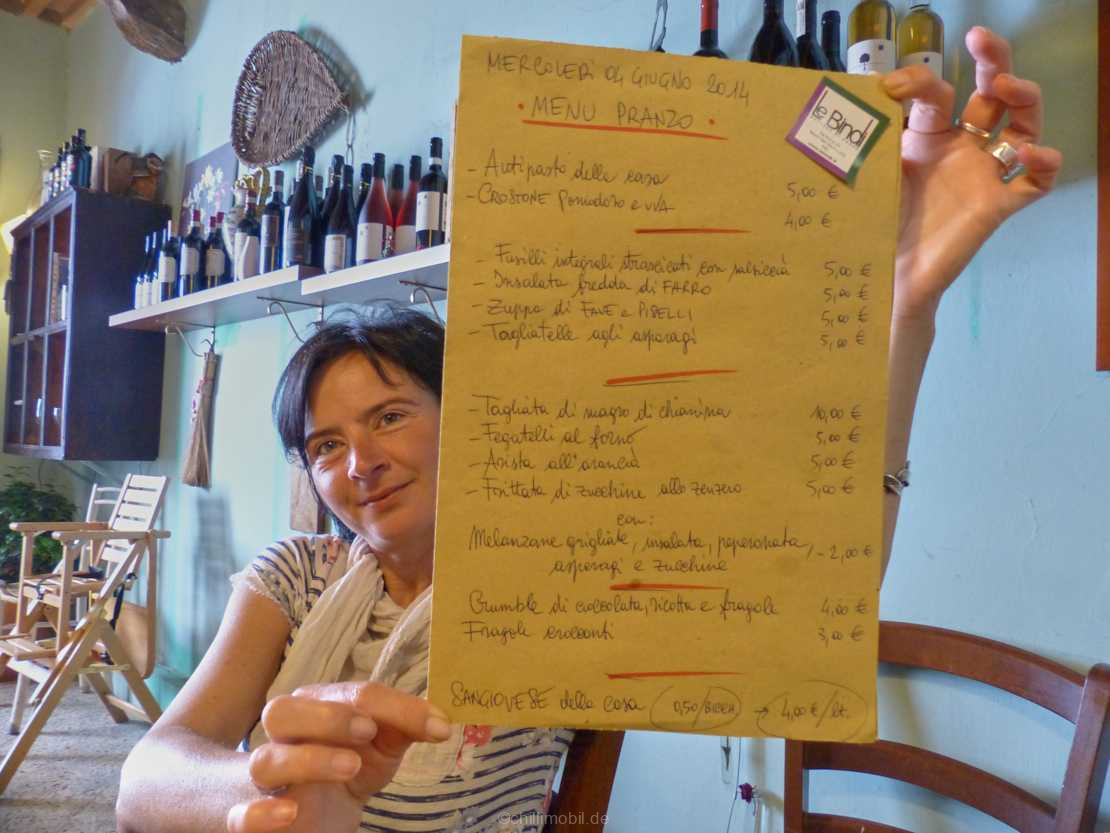 MERCOLEDÌ 04 GIUGNO 2014
• MENU PRANZO •
le Bindi
- Antipasto della casa 5,00 €
- CROSTONE Pomodoro e UVA 4,00 €
- Fusilli integrali strascicati con salsiccia 5,00 €
- Insalata fredda di FARRO 5,00 €
- Zuppa di FAVE e PISELLI 5,00 €
- Tagliatelle agli asparagi 5,00 €
- Tagliata di magro di chianina 10,00 €
- Fegatelli al forno 5,00 €
- Arista all'arancia 5,00 €
- Frittata di zucchine allo zenzero 5,00 €
con:
Melanzane grigliate, insalata, peperonata, - 2,00 €
asparagi e zucchine
Crumble di cioccolata, ricotta e fragola 4,00 €
Fragole croccanti 3,00 €
SANGIOVESE della casa 0,50/BICCH → 4,00 €/lt.
©chilimobil.de